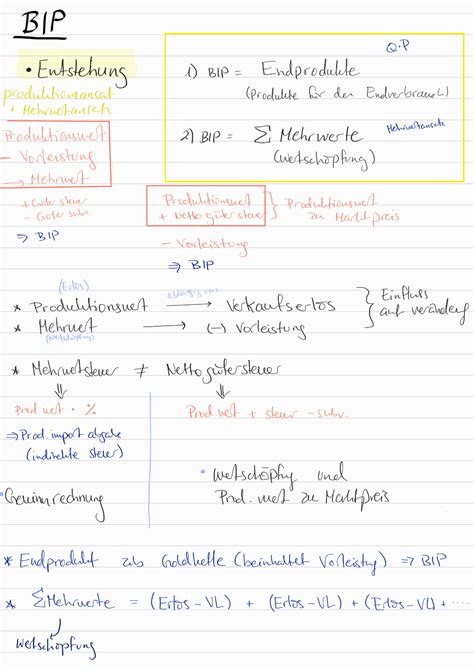 BIP
• Entstehung
produktionsansatz
+ Mehrwertansatz
Q·P
1) BIP = Endprodukte
(Produkte für den Endverbrauch)
2) BIP = Σ Mehrwerte
Mehrwertansatz
(Wertschöpfung)
Produktionswert
- Vorleistung
→ Mehrwert
+ Güter steuer
- Güter subv.
⇒ BIP
Produktionswert
+ Netto güter steuer
Produktionswert
zu Marktpreis
- Vorleistung
⇒ BIP
(Erlös)
* Produktionswert → Verkaufserlös
abhängig von
* Mehrwert → (-) Vorleistung
(Wertschöpfung)
Einfluss
auf veränderg
* Mehrwertsteuer ≠ Nettogütersteuer
Prod.wert · %
⇒ Prod. import abgabe
(indirekte steuer)
Prod.wert + steuer - subv.
• Wertschöpfg und
Prod. wert zu Marktpreis
• Gewinnrechnung
* Endprodukt als Goldkette (beinhaltet Vorleistg) ⇒ BIP
* Σ Mehrwerte = (Erlös - VL) + (Erlös - VL) + (Erlös - VL) + ...
Wertschöpfung